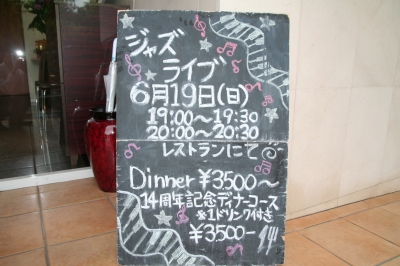 ジャズ
ライブ
6月19日(日)
19:00〜19:30
20:00〜20:30
レストランにて
Dinner ¥3500〜
14周年記念ディナーコース
※1ドリンク付き
¥3,500-